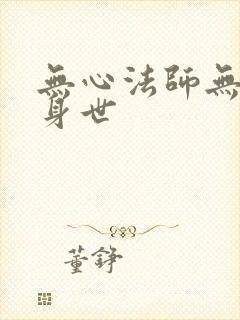 無心法師無
身世
董錚